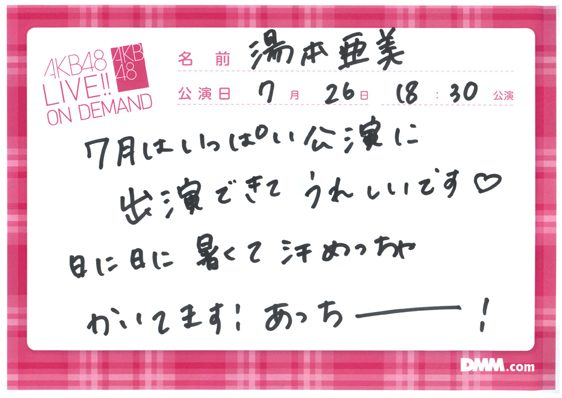 AKB48
LIVE!!
ON DEMAND
AKB
48
名前 湯本亜美
公演日 7月 26日 18:30 公演
7月はいっぱい公演に
出演できて うれしいです♡
日に日に 暑くて 汗めっちゃ
かいてます! あっちー!
DMM.com